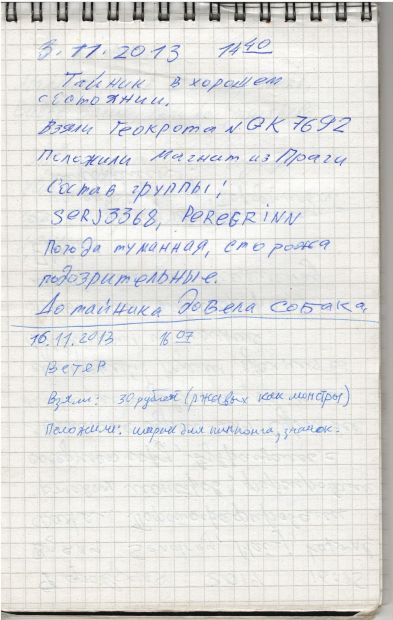 3.11.2013 14 40
Тайник в хорошем
состоянии.
Взяли Геокрота N QK 7692
Положили магнит из Праги
Состав группы:
SERJ3368, PEREGRINN
Погода туманная, сторожа
подозрительные.
До тайника довела собака.
16.11.2013 16 07
ВЕТЕР
Взяли: 30 рублей (ржавых как монстры)
Положили: шарик для пинпонга, значок.